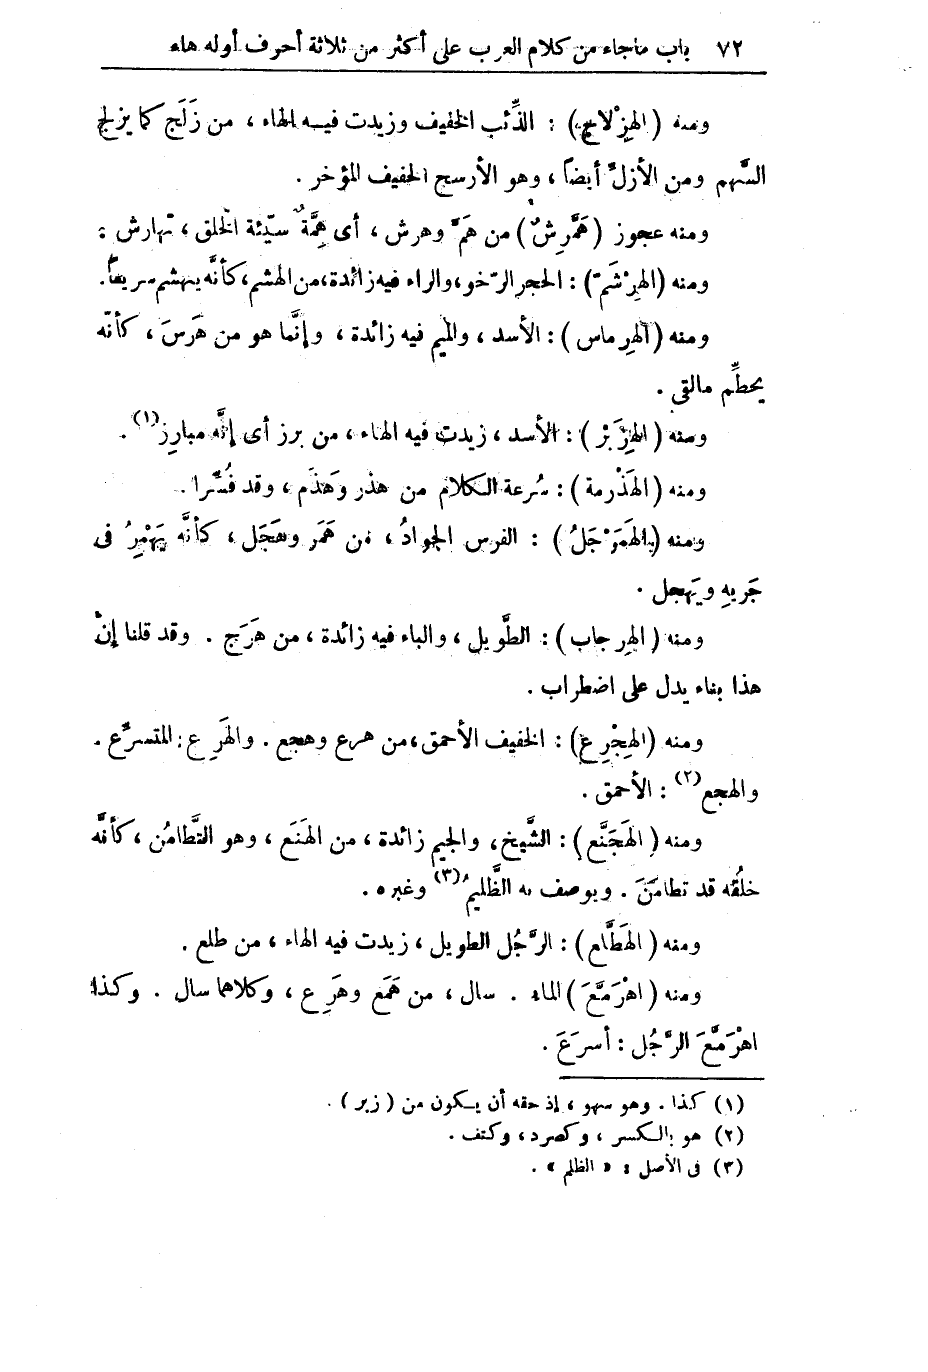 ٧٢ باب ماجاء من كلام العرب على أكثر من ثلاثة أحرف أوله هاء
ومنه (الهِزْلاج) : الذِّئب الخفيف وزيدت فيه الهاء ، من زَلَج كما يزلج
السَّهم ومن الأزلّ أيضاً ، وهو الأرسح الخفيف المؤخر .
ومنه عجوز (هَمَّرِشٌ) من هَمَّ وهرش ، أى هِمَّةٌ سيِّئة الخلق ، تهارش :
ومنه (الهِرْشَمّ) : الحجر الرّخو، والراء فيه زائدة، من الهشم، كأنَّه ينهشم سريعاً.
ومنه (الهِرماس) : الأسد ، والميم فيه زائدة ، وإنَّما هو من هَرَسَ ، كأنّه
يحطِّم مالقى .
ومنه (الهِزَبْر) : الأسد ، زيدت فيه الهاء ، من برز أى إنَّه مبارِز(١) .
ومنه (الهَذْرمة) : سُرعة الكلام من هذر وهَذَم ، وقد فُسِّرا .
ومنه (الهَمَرْجَلُ) : الفرس الجوادُ ، من هَمَر وهَجَل ، كأنَّه يَهْمِرُ فى
جَريهِ ويَهجل .
ومنه (الهِرجاب) : الطَّويل ، والباء فيه زائدة ، من هَرَج . وقد قلنا إنّ
هذا بناء يدل على اضطراب .
ومنه (الهِجْرِع) : الخفيف الأحمق ، من هرع وهجع . والهَرِع : المتسرِّع .
والهجع(٢) : الأحمق .
ومنه (الهَجَنَّع) : الشَّيخ، والجيم زائدة ، من الهَنَع ، وهو التَّطامُن ، كأنَّه
خلْقُه قد تطامَنَ . ويوصف به الظَّليمُ(٣) وغيره .
ومنه (الهَطَّلع) : الرَّجُل الطويل ، زيدت فيه الهاء ، من طلع .
ومنه (اهْرَمَّعَ) الماء . سال ، من هَمَع وهَرِع ، وكلاهما سال . وكذا
اهْرَمَّعَ الرَّجُل : أسرَعَ .
(١) كذا . وهو سهو ، إذ حقه أن يكون من (زبر) .
(٢) هو بالكسر ، وكصرد ، وكتف .
(٣) فى الأصل : « الظلم » .